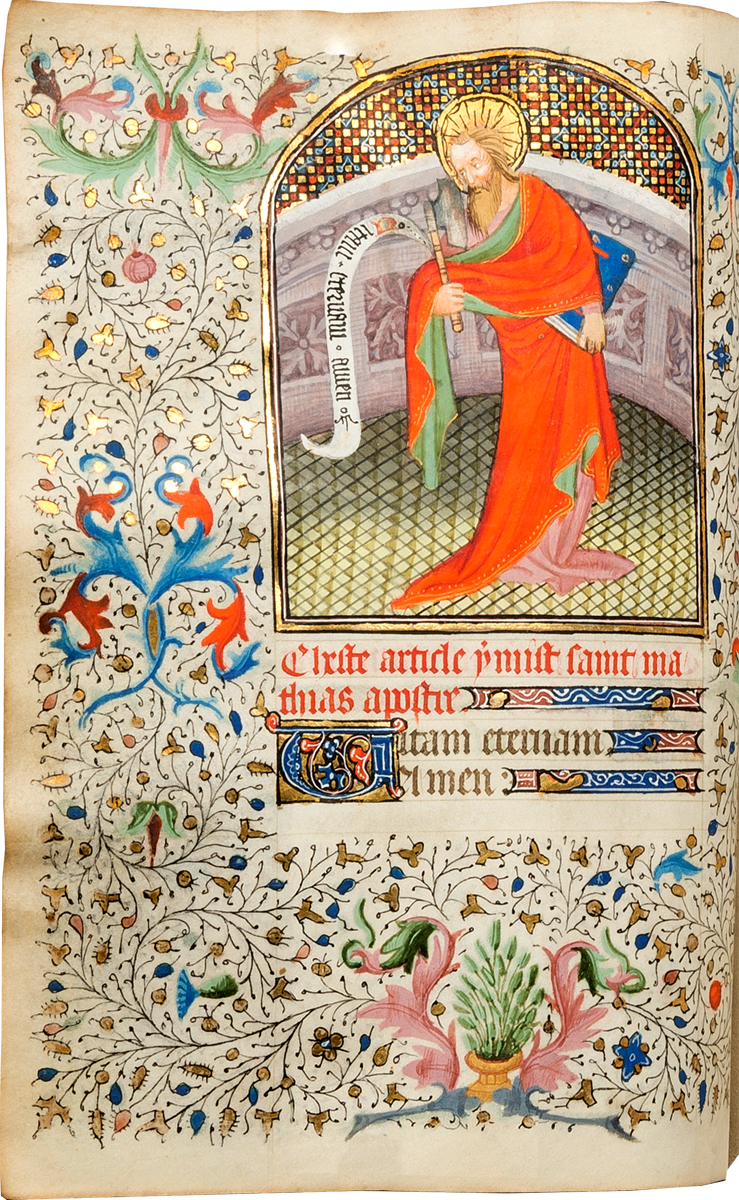 uitam · eternam · amen
Cheste article ẏ mist saint ma
thias apostre
Uitam eternam
Amen :